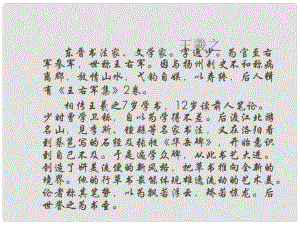 王羲之
东晋书法家、文学家。字逸少。为官至右
军参军，世称王右军。因与扬州刺史不和称病
离郡，放情山水，弋钓自娱，以寿终。后人辑
有《王右军集》2卷。
相传王羲之7岁学书，12岁读前人笔论。
少时曾学卫铄，自以为学得不差。后渡江北游
名山，见李斯、钟繇等名家书法，又在洛阳看
到蔡邕写的石经及张昶《华岳碑》，开始意识
到自己不及。于是遍学众碑，从此书艺大进。
创造了妍美流便的新风格，把草书推向全新的
境界。他的行草书最能体现雄逸流动的艺术美。
论者称其笔势，以为飘若浮云，矫若惊龙。后
世誉之为书圣。